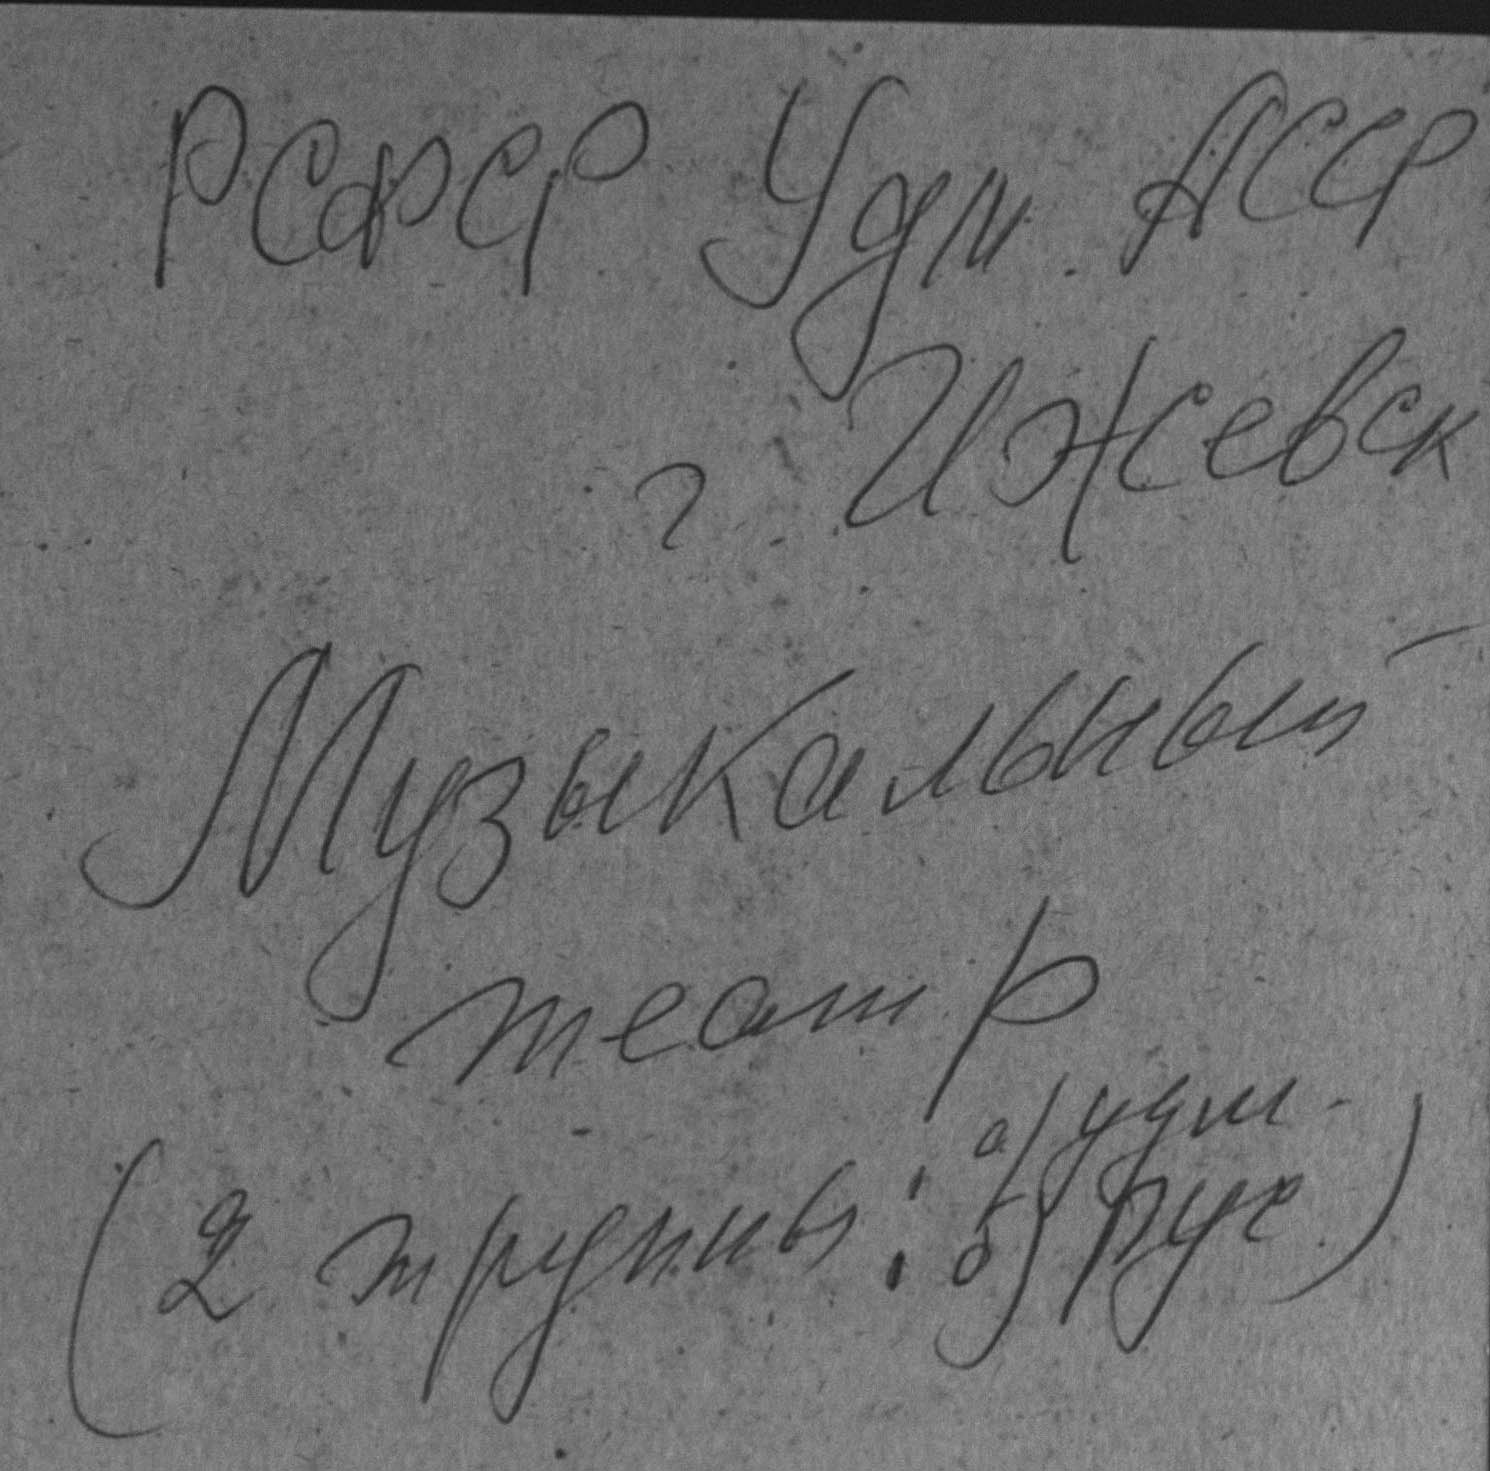 РСФСР Удм. АССР
г. Ижевск
Музыкальный
театр
(2 труппы: а) удм.
б) рус.)